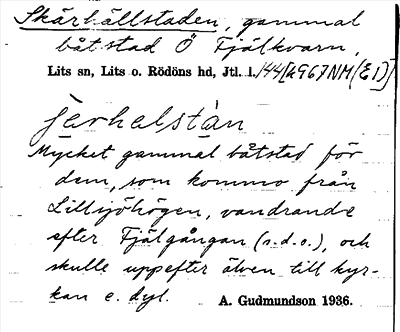 Skärhällstaden, gammal
båtstad Ö Fjälkvarn,
Lits sn, Lits o. Rödöns hd, Jtl. l. 144 [2967 NM (E1)]
Mycket gammal båtstad för
dem, som kommo från
Lillsjöhögen, vandrande
efter Fjälgångan (s.d.o.), och
skulle uppefter älven till kyr-
kan e. dyl.
A. Gudmundson 1936.